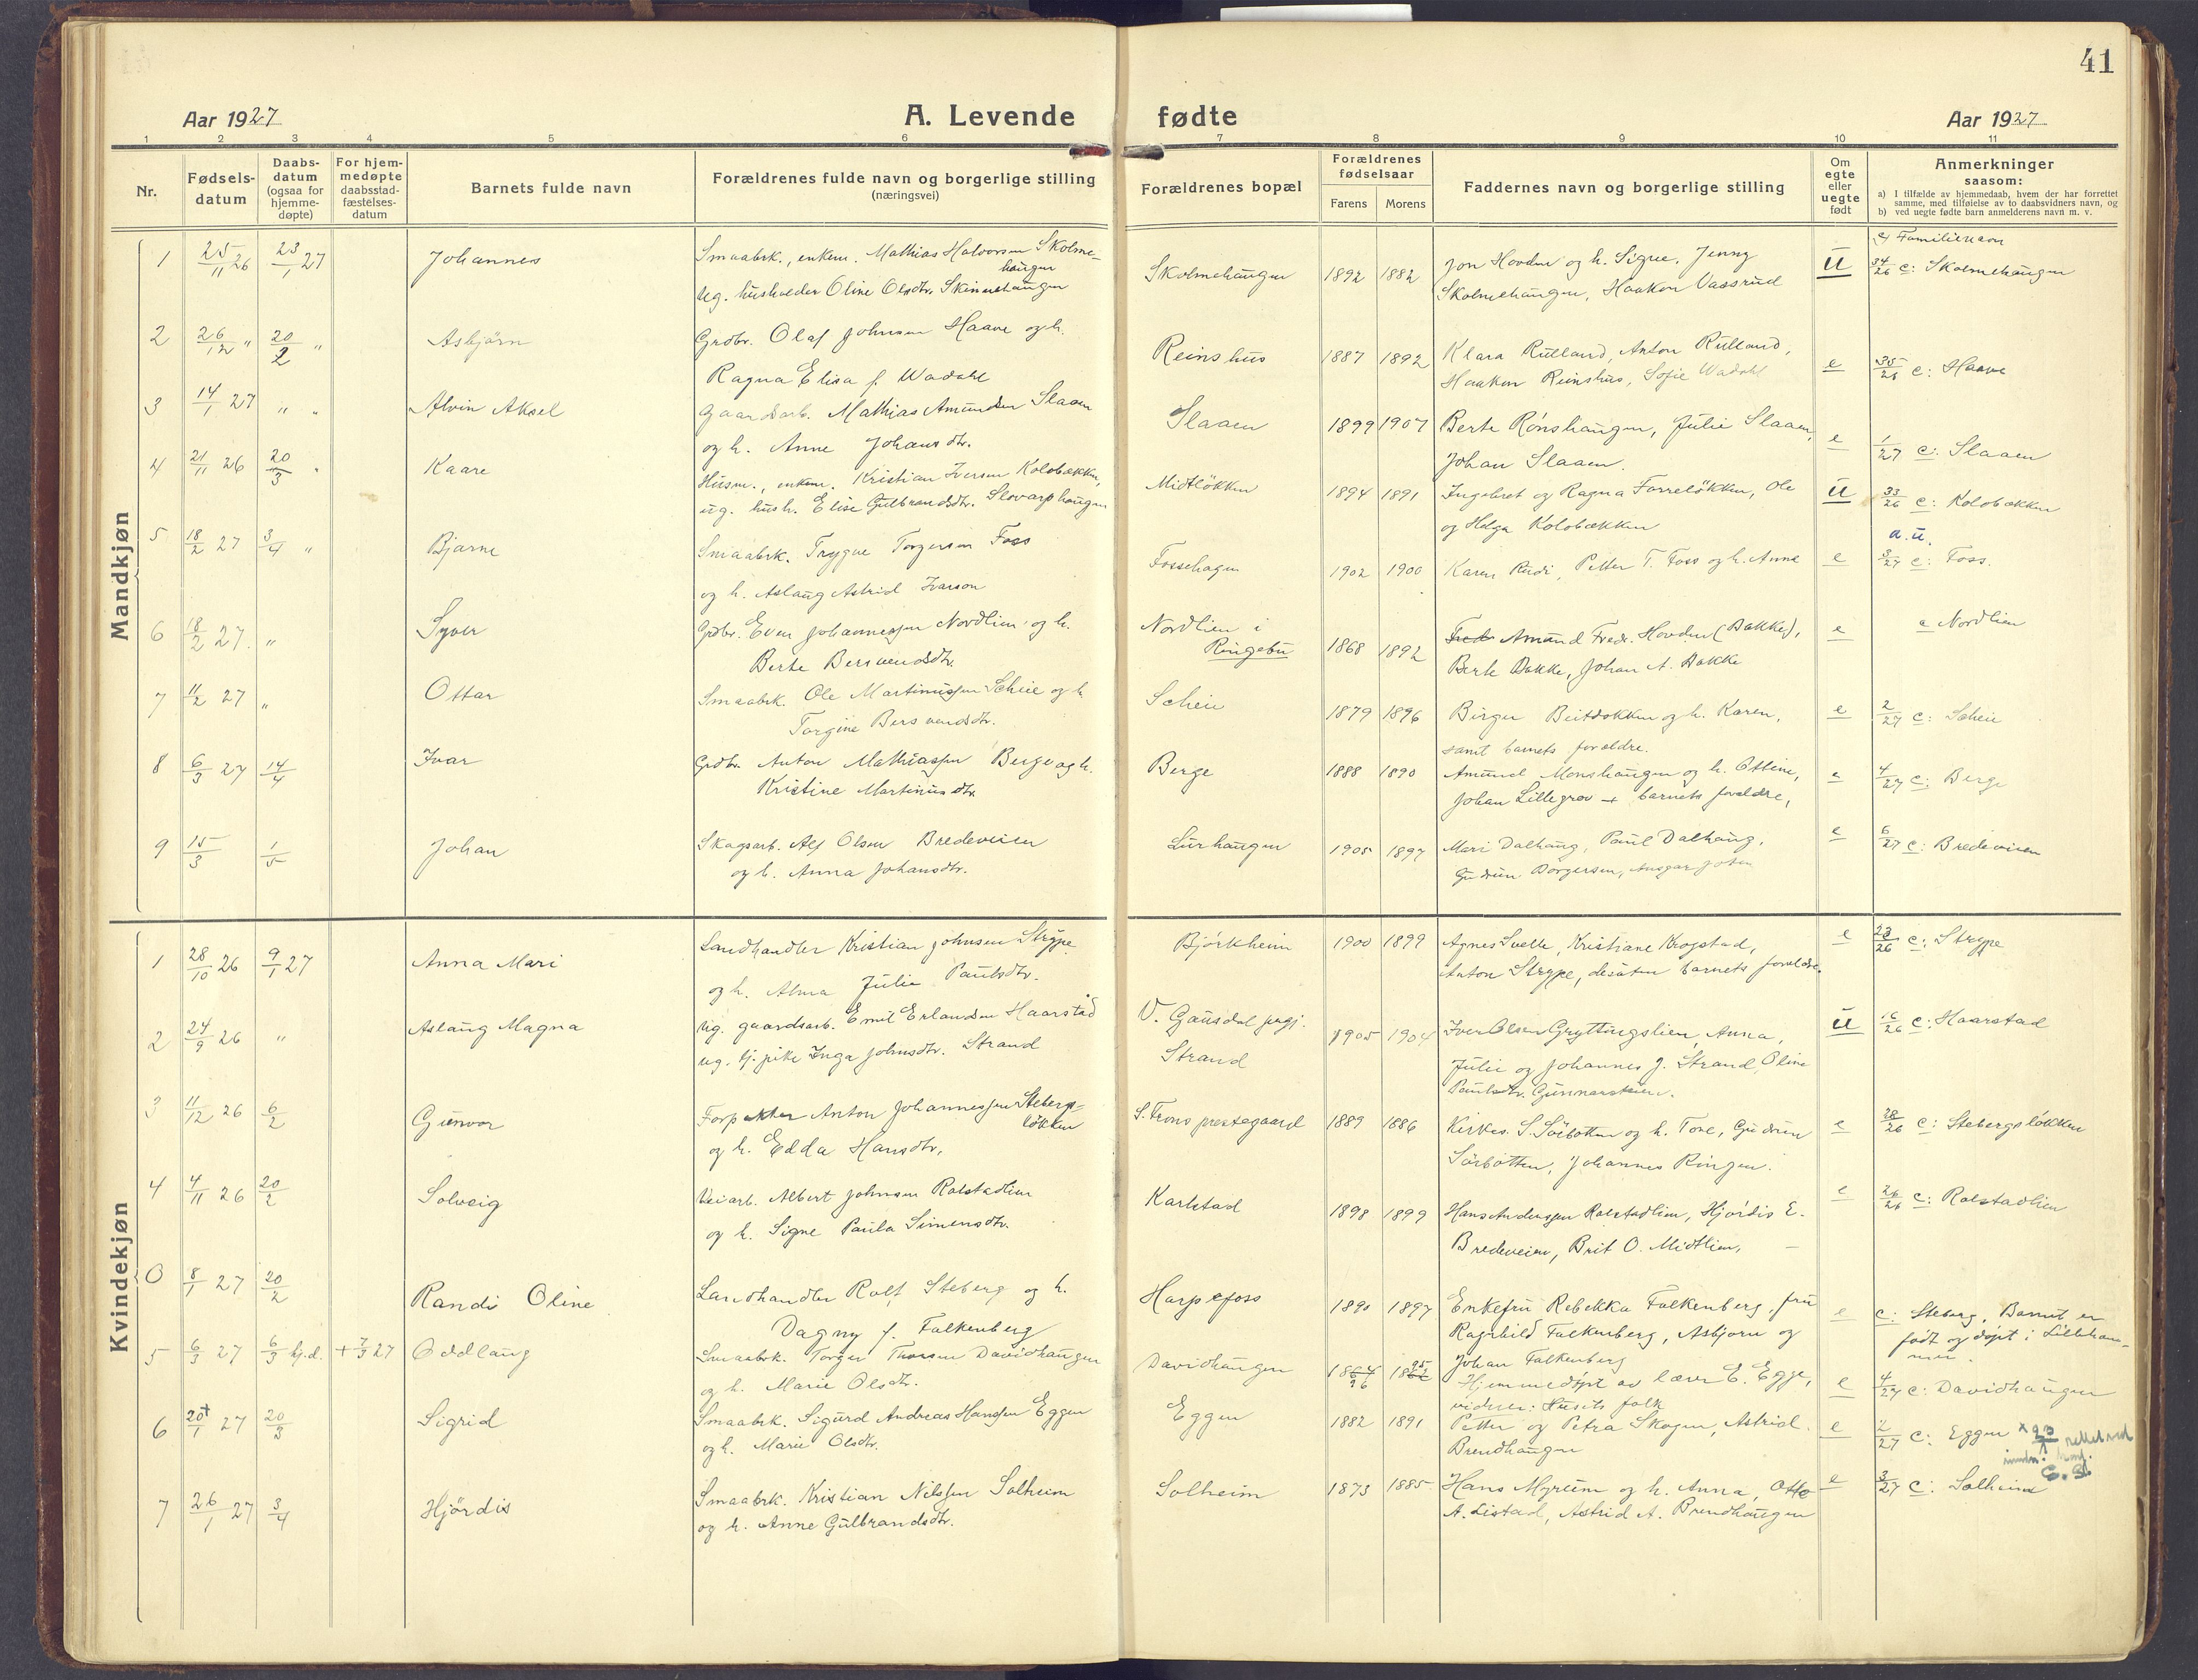 41
Aar 1927
A. Levende fødte
Aar 1927
1 2 3 4 5 6 7 8 9 10 11
Nr.
Fødsels-
datum
Daabs-
datum
(ogsaa for
hjemme-
døpte)
For hjem-
medøpte
daabsstad-
fæstelses-
datum
Barnets fulde navn
Forældrenes fulde navn og borgerlige stilling
(næringsvei)
Forældrenes bopæl
Forældrenes
fødselsaar
Farens
Morens
Faddernes navn og borgerlige stilling
Om
egte
eller
uegte
født
Anmerkninger
saasom:
a) I tilfælde av hjemmedaab, hvem der har forrettet
samme, med tilføielse av to daabsvidners navn, og
b) ved uegte fødte barn anmelderens navn m. v.
Mandkjøn
c) Familienavn
1 25/11 26 23/1 27 Johannes Smaabrk., enkem. Mathias Halvorsen Skolme-
haugen
ug. husholder Oline Olsdtr. Skinnehaugen
Skolmehaugen 1892 1882 Jon Hovden og h. Signe, Jenny
Skolmehaugen, Haakon Vassrud
u 34/26 c: Skolmehaugen
2 26/12 " 20/2 " Asbjörn Grdbr. Olaf Johnsen Haave og h.
Ragna Elisa f. Wadahl
Reinshus 1887 1892 Klara Rulland, Anton Rulland,
Haakon Reinshus, Sofie Wadahl
e 35/26 c: Haave
3 14/1 27 " " Alvin Aksel Gaardsarb. Mathias Amundsen Slaaen
og h. Anne Johansdtr.
Slaaen 1899 1907 Berte Rönshaugen, Julie Slaaen,
Johan Slaaen.
e 1/27 c: Slaaen
4 21/11 26 20/3 " Kaare Husm., enkem. Kristian Iversen Kolobækken,
ug. hush. Elise Gulbrandsdtr. Slovarphaugen
Midtlökken 1894 1891 Ingebret og Ragna Forrelökken, Ole
og Helga Kolobækken
u 33/26 c: Kolobækken
a.u.
5 18/2 27 3/4 " Bjarne Smaabrk. Trygve Torgersen Foss
og h. Aslaug Astrid Ivarson
Fossehagen 1902 1900 Karen Rudi, Petter T. Foss og h. Anne
e 3/27 c: Foss.
6 18/2 27. " Syver Grdbr. Even Johannessen Nordlien og h.
Berte Bersvendsdtr.
Nordlien i
Ringebu
1868 1892 Fredr Amund Fredr. Hovden (Bakke),
Berte Bakke, Johan A. Bakke
e c Nordlien
7 11/2 27 " Ottar Smaabrk. Ole Martinussen Scheie og h
Torgine Bersvendsdtr.
Scheie 1879 1896 Birger Beitdokken og h. Karen,
samt barnets forældre.
e 2/27 c: Scheie
8 6/3 27 14/4 Ivar Grdbr. Anton Mathiassen Berge og h.
Kristine Martinusdtr.
Berge 1888 1890 Amund Monshaugen og h. Otline,
Johan Lillegrov + barnets forældre,
e 4/27 c: Berge
9 15/3 1/5 Johan Skogsarb. Alf Olsen Bredeveien
og h. Anna Johansdtr.
Lurhaugen 1905 1897 Mari Dalhaug, Paul Dalhaug,
Gudrun Borgersen, Ansgar
e 6/27 c: Bredeveien
Kvindekjøn
1 28/10 26 9/1 27 Anna Mari Landhandler Kristian Johnsen Strype
og h. Alma Julie Paulsdtr.
Björkheim 1900 1899 Agnes Svelle, Kristiane Krogstad,
Anton Strype, desuten barnets forældre.
e 23/26 c: Strype
2 24/9 26 " Aslaug Magna Ug. gaardsarb. Emil Erlandsen Haarstad
ug. tj. pike Inga Johnsdtr. Strand
V. Gausdal prgj.
Strand
1905 1904 Iver Olsen Gryttingslien, Anna,
Julie og Johannes J. Strand, Oline
Paulsdtr. Gunnarsteien.
u 16/26 c: Haarstad
3 11/12 26 6/2 Gunvor Forpakter Anton Johannessen Stebergs-
lökken
og h. Edda Hansdtr,
S. Frons prestegaard 1889 1886 Kirkes. S. Sörbotten og h. Tone, Gudrun
Sörbotten, Johannes Ringen.
e 28/26 c: Stebergslökken
4 4/11 26 20/2 Solveig Veiarb. Albert Johnsen Rolstadlien
og h. Signe Paula Simensdtr.
Karlstad 1898 1899 Hans Andersen Rolstadlien, Hjördis E.
Bredeveien, Brit O. Midtlien,
e 26/26 c: Rolstadlien
0 8/1 27 20/2 Randi Oline Landhandler Rolf Steberg og h.
Dagny f. Falkenberg
Harpefoss 1890 1897 Enkefru Rebekka Falkenberg, fru
Ragnhild Falkenberg, Asbjorn og
Johan Falkenberg
e c: Steberg, Barnet er
født og døpt i Lilleham-
mer.
5 6/3 27 6/3 hj.d. + 7/3 27 Oddlaug Smaabrk. Torger Thorsen Davidhaugen
og h. Marie Olsdtr.
Davidhaugen 1864 96 1862 95 Hjemmedøpt av lærer E. Egge,
vidner: Husets folk
e 4/27 c: Davidhaugen
6 20+/1 27 20/3 Sigrid Smaabrk. Sigurd Andreas Hansen Eggen
og h. Marie Olsdtr.
Eggen 1882 1891 Petter og Petra Skogen, Astrid
Brendhaugen
e 2/27 c: Eggen x 23/1 rettet ved
7 26/1 27 3/4 Hjördis Smaabrk. Kristian Nilssen Solheim
og h. Anne Gulbrandsdtr.
Solheim 1873 1885 Hans Myrum og h. Anna, Otto
A. Listad, Astrid A. Brendhaugen
e 3/27 c: Solheim